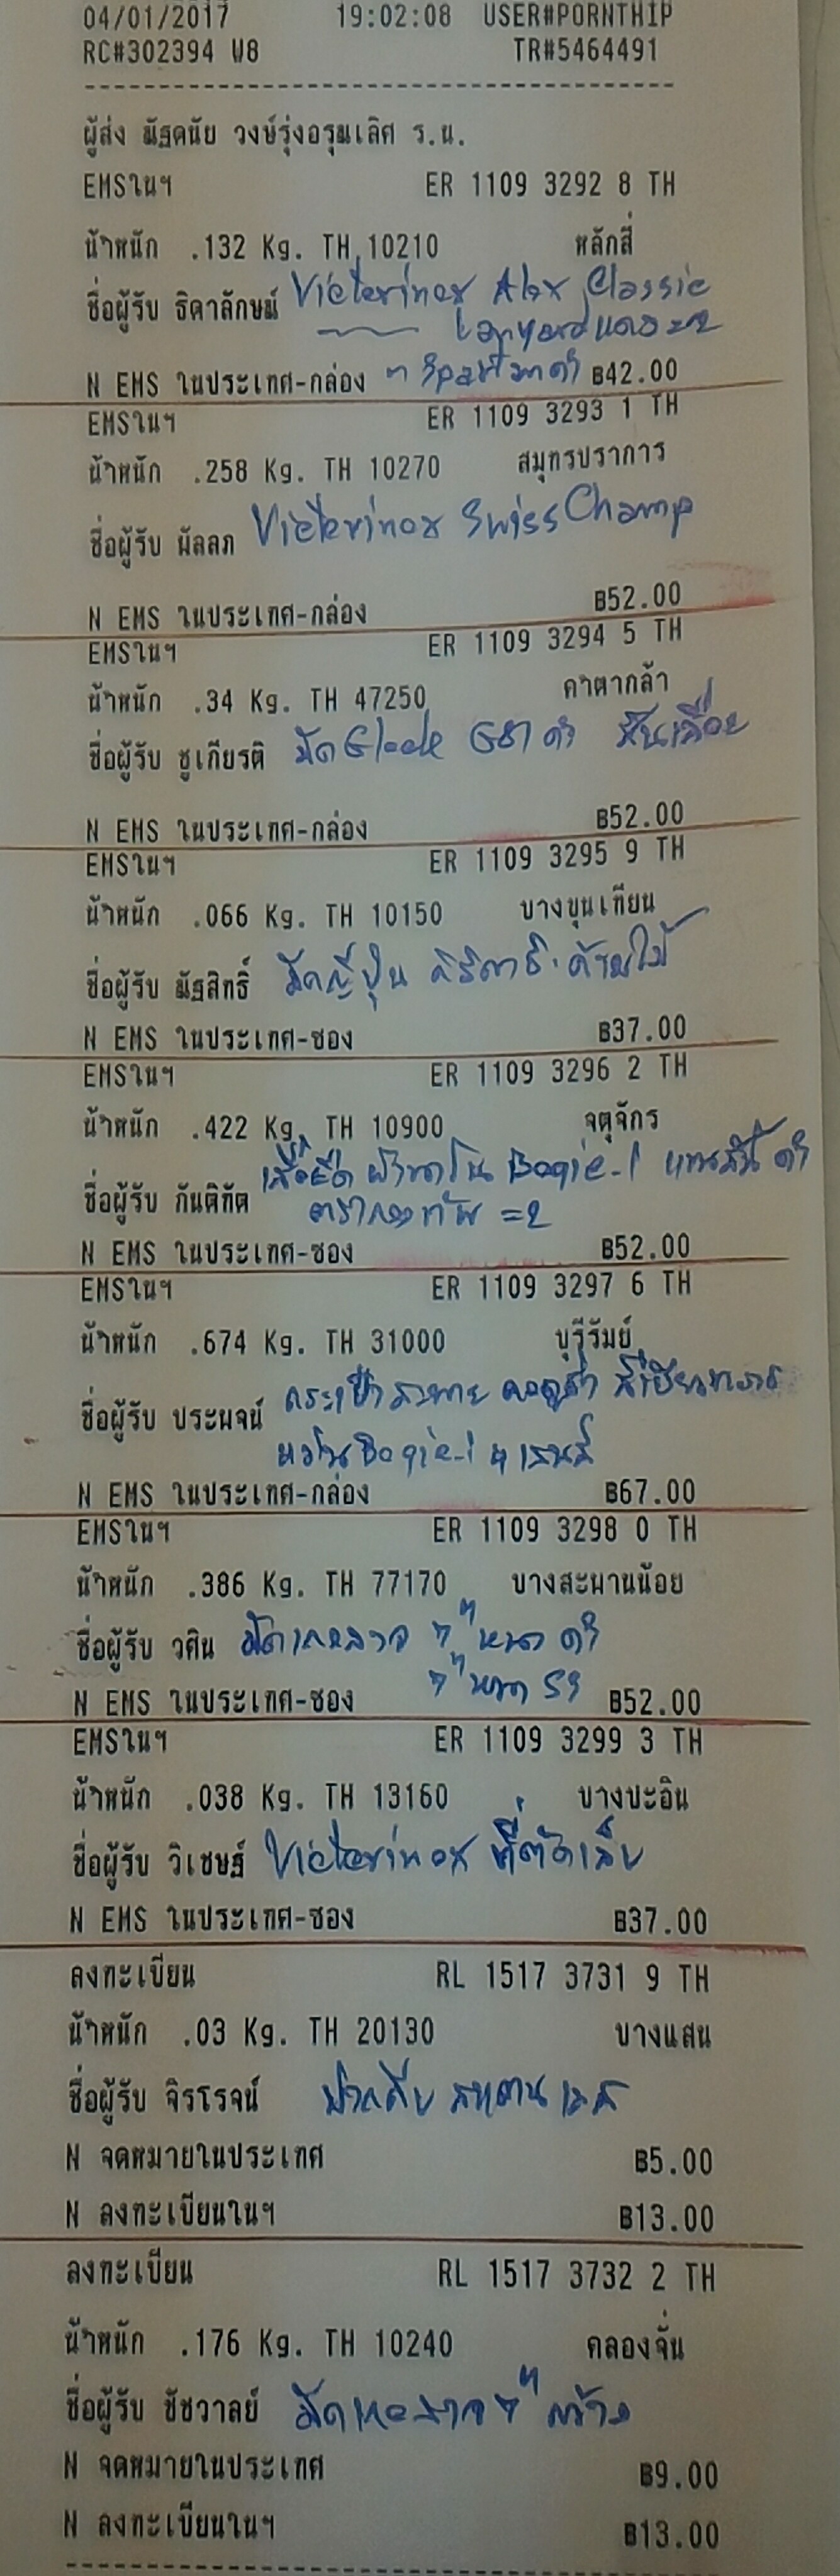 04/01/2017 19:02:08 USER#PORNTHIP
RC#302394 W8 TR#5464491
ผู้ส่ง ณัฐดนัย วงษ์รุ่งอรุณเลิศ ร.น.
EMSในฯ ER 1109 3292 8 TH
น้ำหนัก .132 Kg. TH 10210 หลักสี่
ชื่อผู้รับ ธิดาลักษณ์ Victorinox Alox Classic
Lanyard แดง =2
N EMS ในประเทศ-กล่อง ฿42.00
EMSในฯ ER 1109 3293 1 TH
น้ำหนัก .258 Kg. TH 10270 สมุทรปราการ
ชื่อผู้รับ มัลลภ Victorinox Swiss Champ
N EMS ในประเทศ-กล่อง ฿52.00
EMSในฯ ER 1109 3294 5 TH
น้ำหนัก .34 Kg. TH 47250 คาตากล้า
ชื่อผู้รับ ชูเกียรติ มีด Glock G81 ดำ สันเลื่อย
N EMS ในประเทศ-กล่อง ฿52.00
EMSในฯ ER 1109 3295 9 TH
น้ำหนัก .066 Kg. TH 10150 บางขุนเทียน
ชื่อผู้รับ ณัฐสิทธิ์ มีดญี่ปุ่น ด้ามไม้
N EMS ในประเทศ-ซอง ฿37.00
EMSในฯ ER 1109 3296 2 TH
น้ำหนัก .422 Kg. TH 10900 จตุจักร
ชื่อผู้รับ กันติทัต เสื้อยืด Bogie-1 แขนสั้น ดำ
ตรากองทัพ =2
N EMS ในประเทศ-ซอง ฿52.00
EMSในฯ ER 1109 3297 6 TH
น้ำหนัก .674 Kg. TH 31000 บุรีรัมย์
ชื่อผู้รับ ประผจน์ กระเป๋าสะพาย สีเขียว
Bogie-1
N EMS ในประเทศ-กล่อง ฿67.00
EMSในฯ ER 1109 3298 0 TH
น้ำหนัก .386 Kg. TH 77170 บางสะพานน้อย
ชื่อผู้รับ วศิน มีดแกะสลัก 7" หนา ดำ
7" หนา
N EMS ในประเทศ-ซอง ฿52.00
EMSในฯ ER 1109 3299 3 TH
น้ำหนัก .038 Kg. TH 13160 บางปะอิน
ชื่อผู้รับ วิเชษฐ์ Victorinox ที่ตัดเล็บ
N EMS ในประเทศ-ซอง ฿37.00
ลงทะเบียน RL 1517 3731 9 TH
น้ำหนัก .03 Kg. TH 20130 บางแสน
ชื่อผู้รับ จิรโรจน์ ปากคีบ สแตนเลส
N จดหมายในประเทศ ฿5.00
N ลงทะเบียนในฯ ฿13.00
ลงทะเบียน RL 1517 3732 2 TH
น้ำหนัก .176 Kg. TH 10240 คลองจั่น
ชื่อผู้รับ ชัชวาลย์ 7" กว้าง
N จดหมายในประเทศ ฿9.00
N ลงทะเบียนในฯ ฿13.00